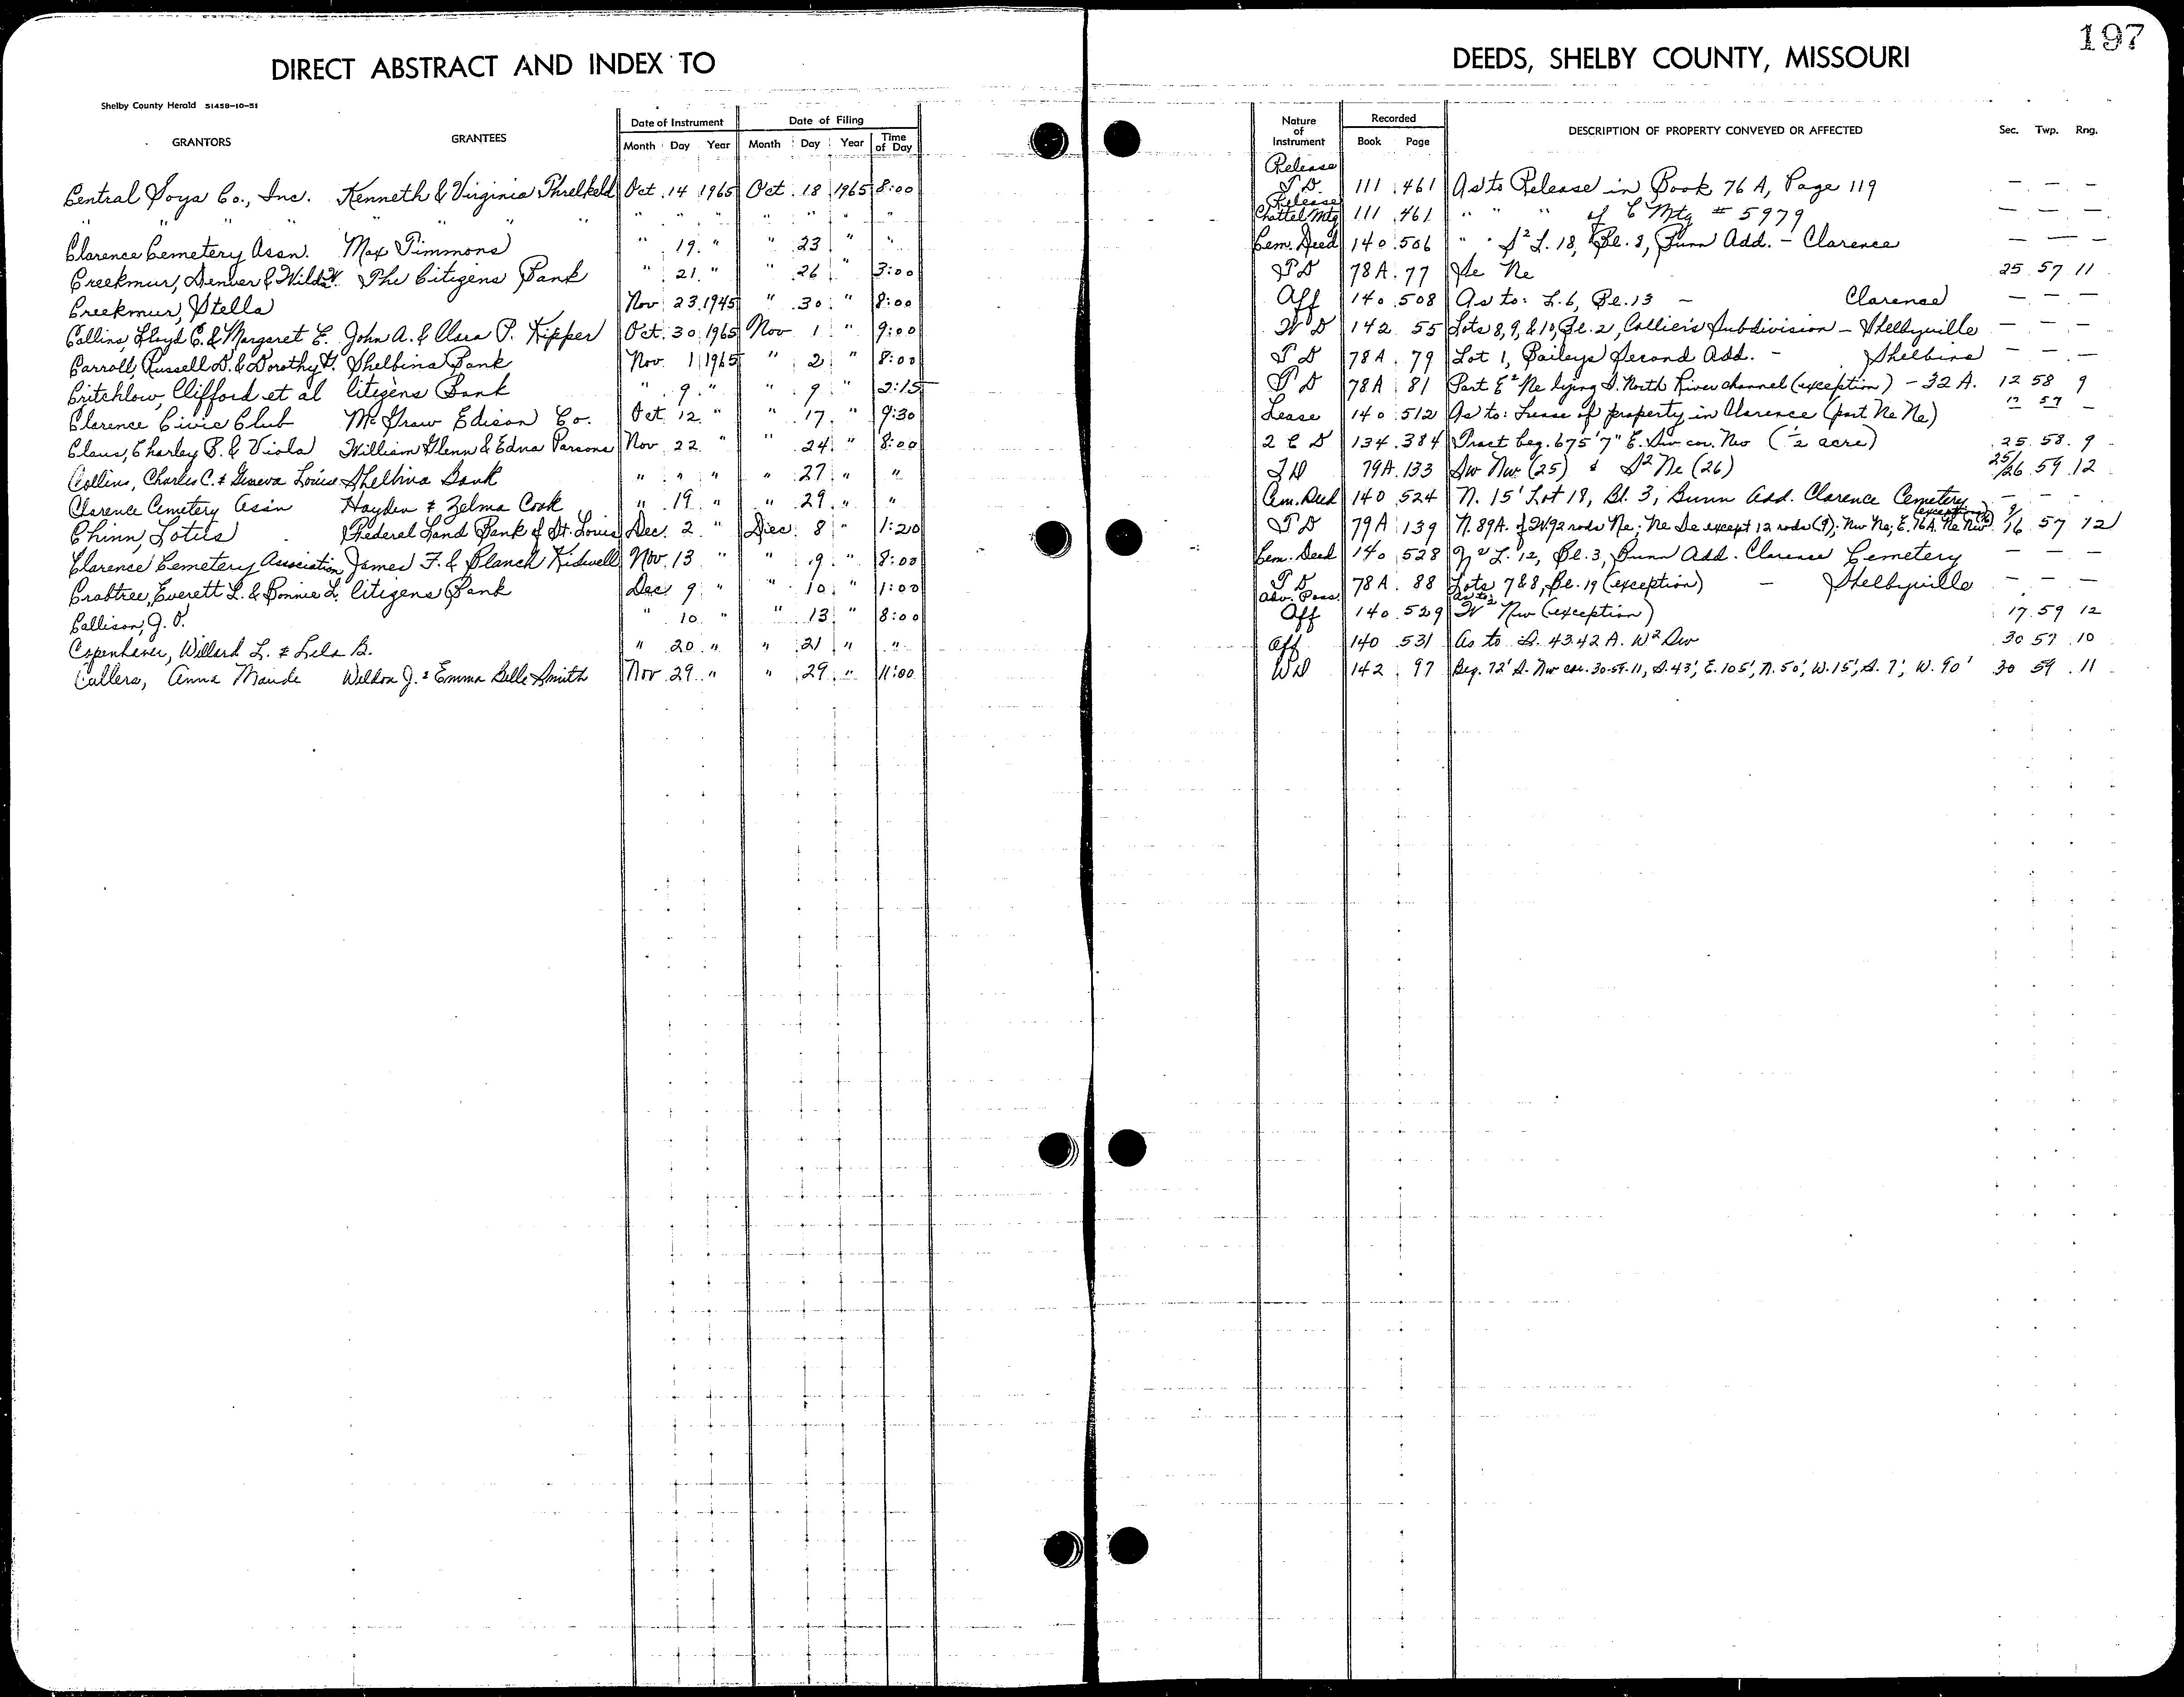 197
DIRECT ABSTRACT AND INDEX TO DEEDS, SHELBY COUNTY, MISSOURI
Shelby County Herald 51458-10-51
GRANTORS GRANTEES Date of Instrument Month Day Year Date of Filing Month Day Year Time of Day Nature of Instrument Recorded Book Page DESCRIPTION OF PROPERTY CONVEYED OR AFFECTED Sec. Twp. Rng.
Central Soya Co., Inc. Kenneth & Virginia Threlkeld Oct. 14 1965 Oct. 18 1965 8:00 Release T.D. 111 461 As to Release in Book 76 A, Page 119 — — —
" " " " " " " " " " " Release Chattel Mtg 111 461 " " " of C Mtg # 5979 — — —
Clarence Cemetery Assn. Max Timmons " 19 " " 23 " " Cem. Deed 140 506 " " S² L. 18, Bl. 3, Bunn Add. - Clarence — — —
Creekmur, Denver & Wilda The Citizens Bank " 21 " " 26 " 3:00 T D 78A 77 Se Ne 25 57 11
Creekmur, Stella Nov 23 1945 " 30 " 8:00 Aff 140 508 As to: L. 6, Bl. 13 - Clarence — — —
Collins, Lloyd C. & Margaret E. John A. & Clara P. Kipper Oct. 30 1965 Nov 1 " 9:00 W D 142 55 Lots 8, 9, & 10, Bl. 2, Collier's Subdivision - Shelbyville — — —
Carroll, Russell D. & Dorothy H. Shelbina Bank Nov. 1 1965 " 2 " 8:00 T D 78A 79 Lot 1, Baileys Second Add. - Shelbina — — —
Critchlow, Clifford et al Citizens Bank " 9 " " 9 " 2:15 T D 78A 81 Part E² Ne lying S. North River channel (exception) - 32 A. 12 58 9
Clarence Civic Club McGraw Edison Co. Oct. 12 " " 17 " 9:30 Lease 140 512 As to: Lease of property in Clarence (part Ne Ne) 57 —
Claus, Charley B. & Viola William Glenn & Edna Parsons Nov. 22 " " 24 " 8:00 2 C D 134 384 Tract beg. 675'7" E. Sw cor. Nw (½ acre) 25 58 9
Collins, Charles C. & Geneva Louise Shelbina Bank " " " " 27 " " T D 79A 133 Sw Nw (25) & S² Ne (26) 25/26 59 12
Clarence Cemetery Ass'n Hayden & Zelma Cook " 19 " " 29 " " Cem. Deed 140 524 N. 15' Lot 18, Bl. 3, Bunn Add. Clarence Cemetery — — —
Chinn, Lotus Federal Land Bank of St. Louis Dec. 2 " Dec. 8 " 1:20 T D 79A 139 N. 89A. of W 92 rods Ne; Ne Se except 12 rods (9); Nw Ne; E. 76A. Ne Nw (exception) 9/16 57 12
Clarence Cemetery Association James F. & Blanch Kidwell Nov. 13 " " 9 " 8:00 Cem. Deed 140 528 N² L. 12, Bl. 3, Bunn Add. Clarence Cemetery — — —
Crabtree, Everett L. & Bonnie L. Citizens Bank Dec 9 " " 10 " 1:00 T D 78A 88 Lots 7 & 8, Bl. 19 (exception) - Shelbyville — — —
Callison, J. O. " 10 " " 13 " 8:00 Adv. Poss. Aff 140 529 As to: W² Nw (exception) 17 59 12
Copenhaver, Willard L. & Lela B. " 20 " " 21 " " Aff 140 531 As to S. 43.42 A. W² Sw 30 57 10
Cullers, Anna Maude Weldon J. & Emma Belle Smith Nov 29 " " 29 " 11:00 WD 142 97 Beg. 72' S. Nw cor. 30-59-11, S. 43', E. 105', N. 50', W. 15', S. 7', W. 90' 30 59 11